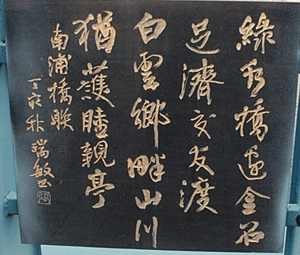 綠水橋邊金石
足濟交友渡
白雲鄉畔山川
猶護睦親亭
南浦橋聯
丁亥秋 瑞敏書